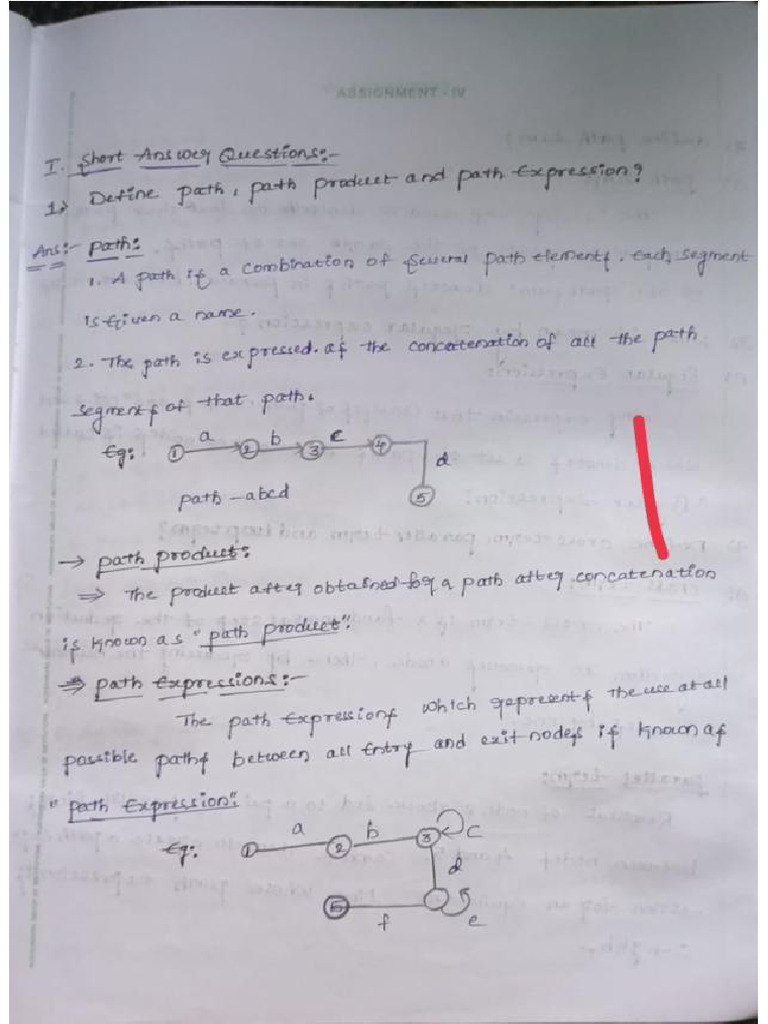 ASSIGNMENT - IV
I. Short Answer Questions:-
1) Define path, path product and path Expression?
Ans:- path:
1. A path is a combination of several path elements. Each segment
is Given a name.
2. The path is expressed. as the concatenation of all the path
segments of that path.
Eg: 1 a 2 b 3 c 4
d
path - abcd 5
→ path product:
⇒ The product after obtained for a path after concatenation
is known as "path product".
⇒ path Expressions:-
The path Expressions which represents the use at all
possible paths between all Entry and exit nodes is known as
"path Expression".
Eg: 1 a 2 b 3 c
d
5 f e